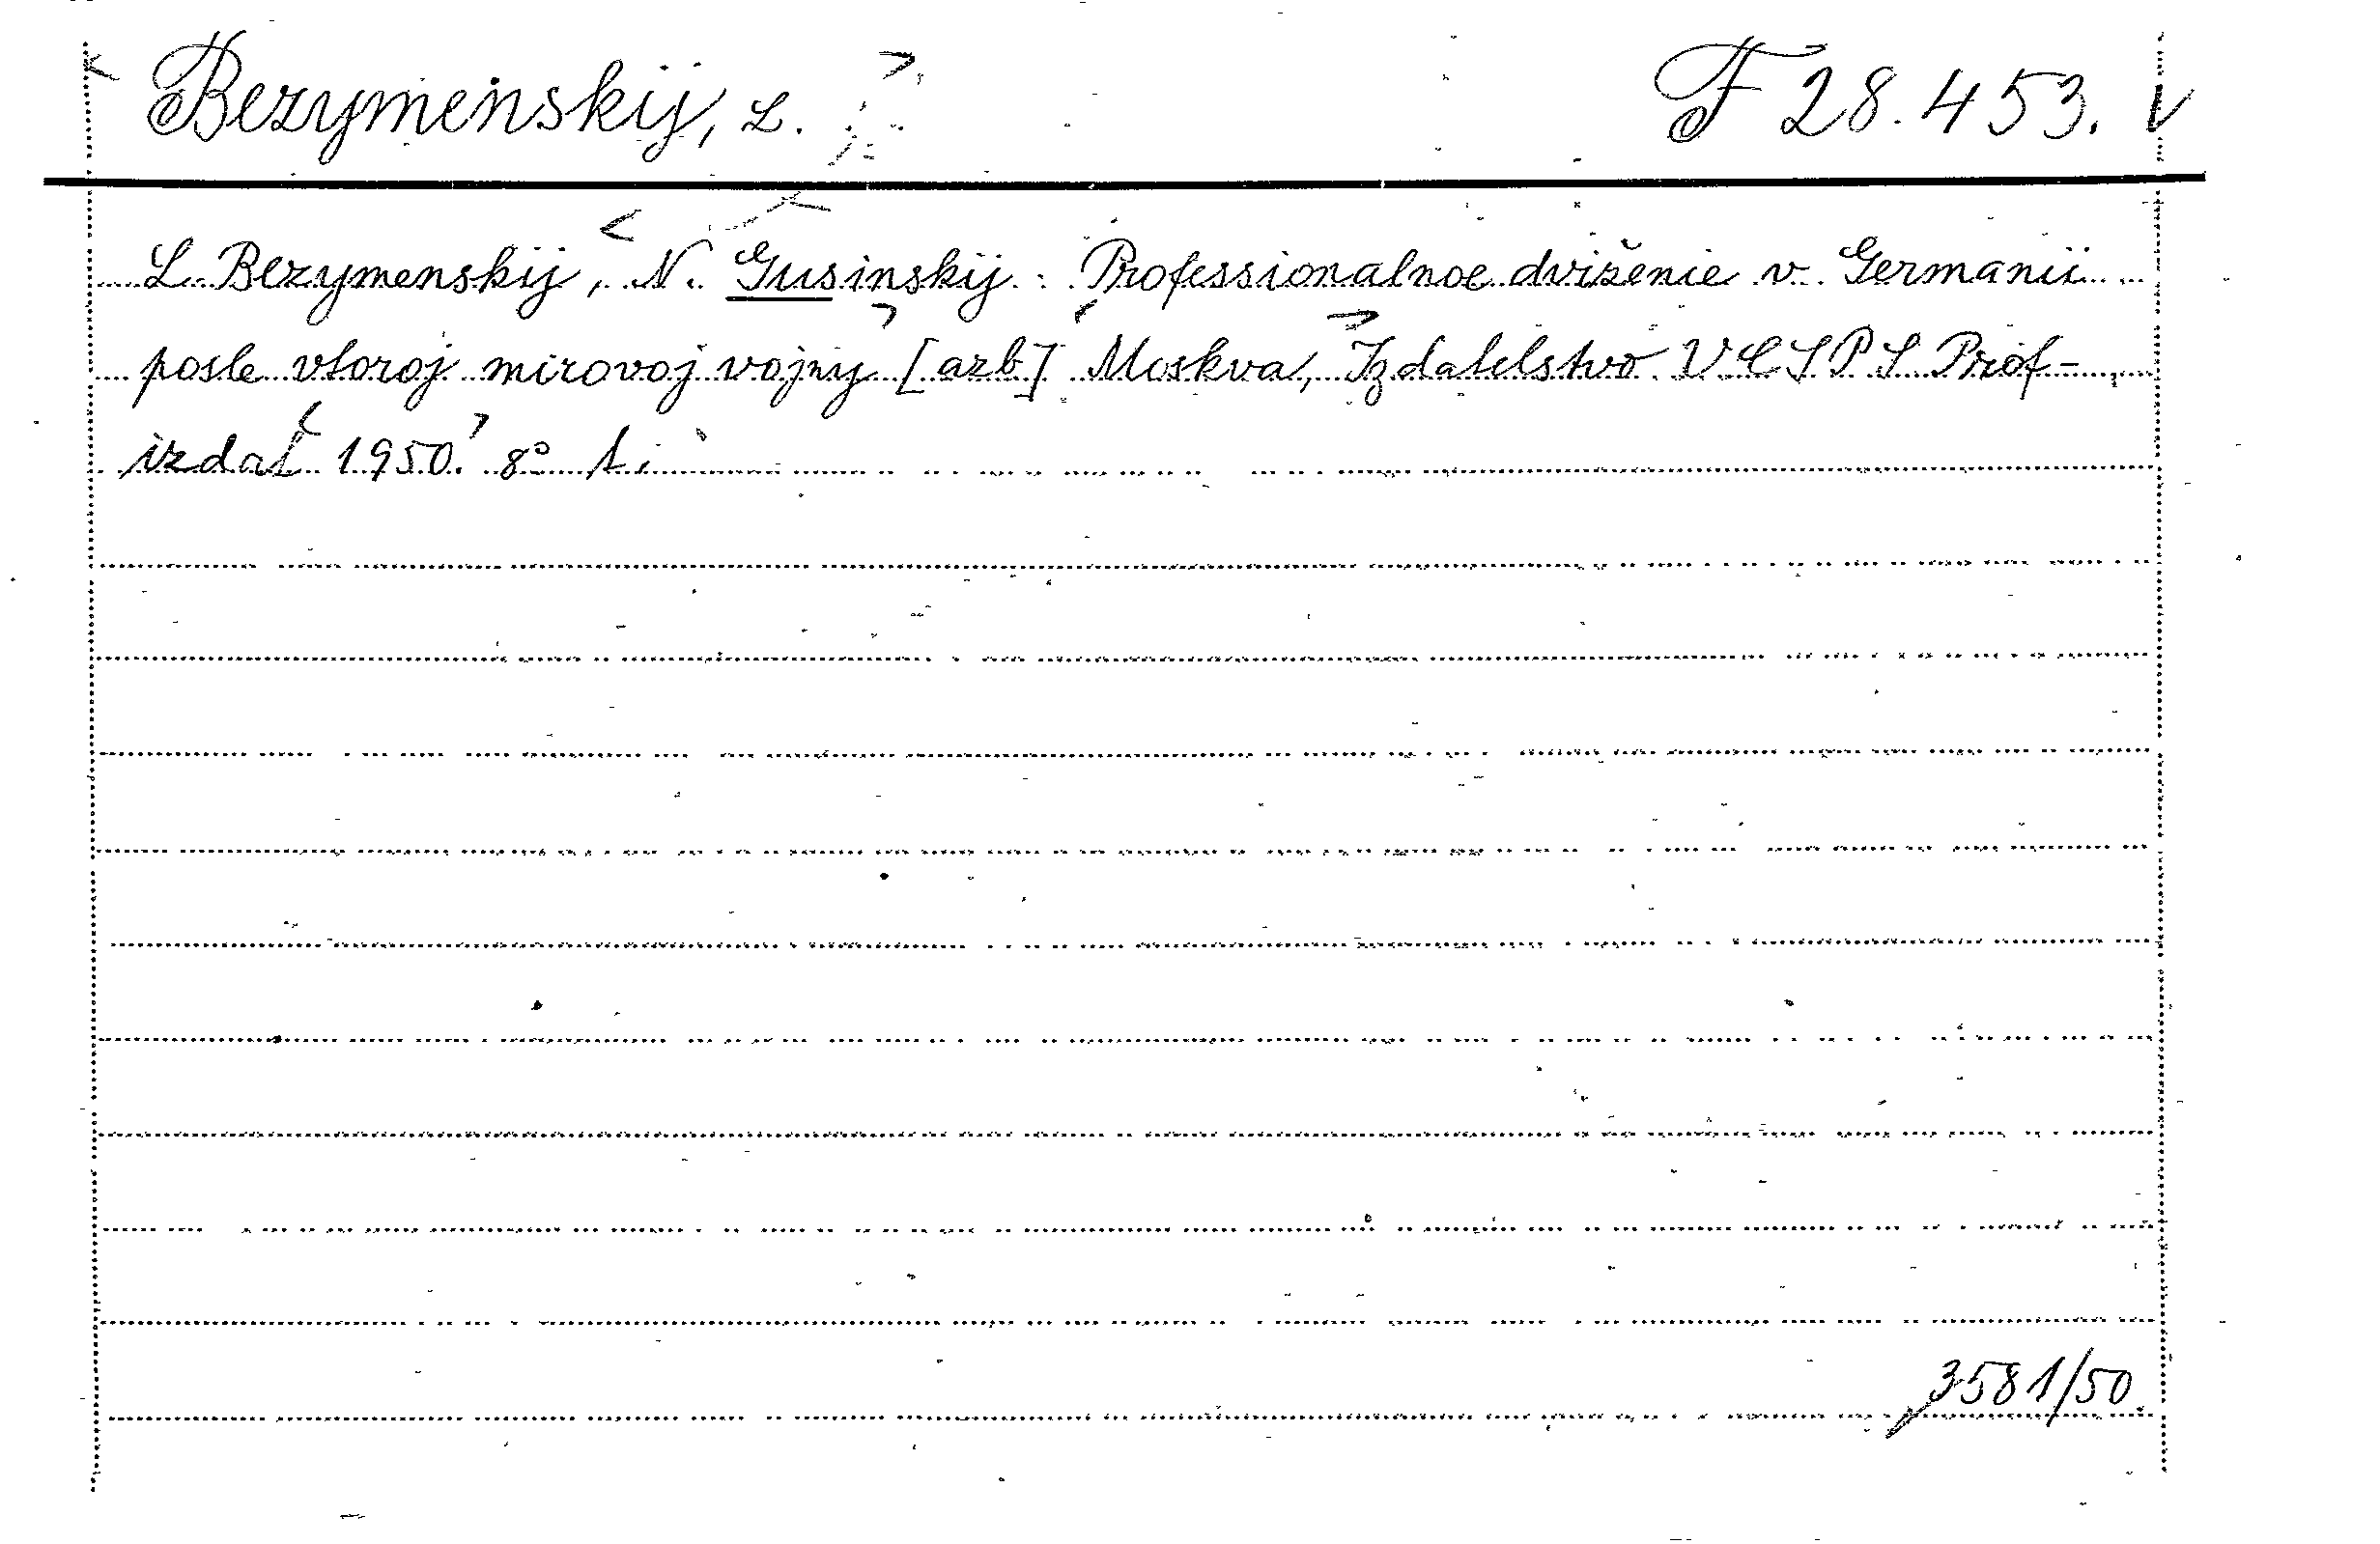 Bezymenskij, L. F 28.453. V
L Bezymenskij, N. Gusinskij: Professionalnoe dviženie v Germanii
posle vtoroj mirovoj vojny [azb] Moskva, Izdatelstvo VCSPS Prof-
izdat 1950. 8°
3581/50.